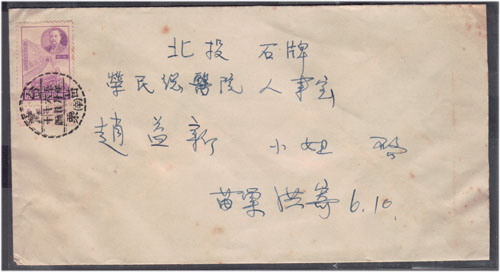 北投 石牌
榮民總醫院 人事室
趙益新 小姐 啓
苗栗洪寄 6.10.